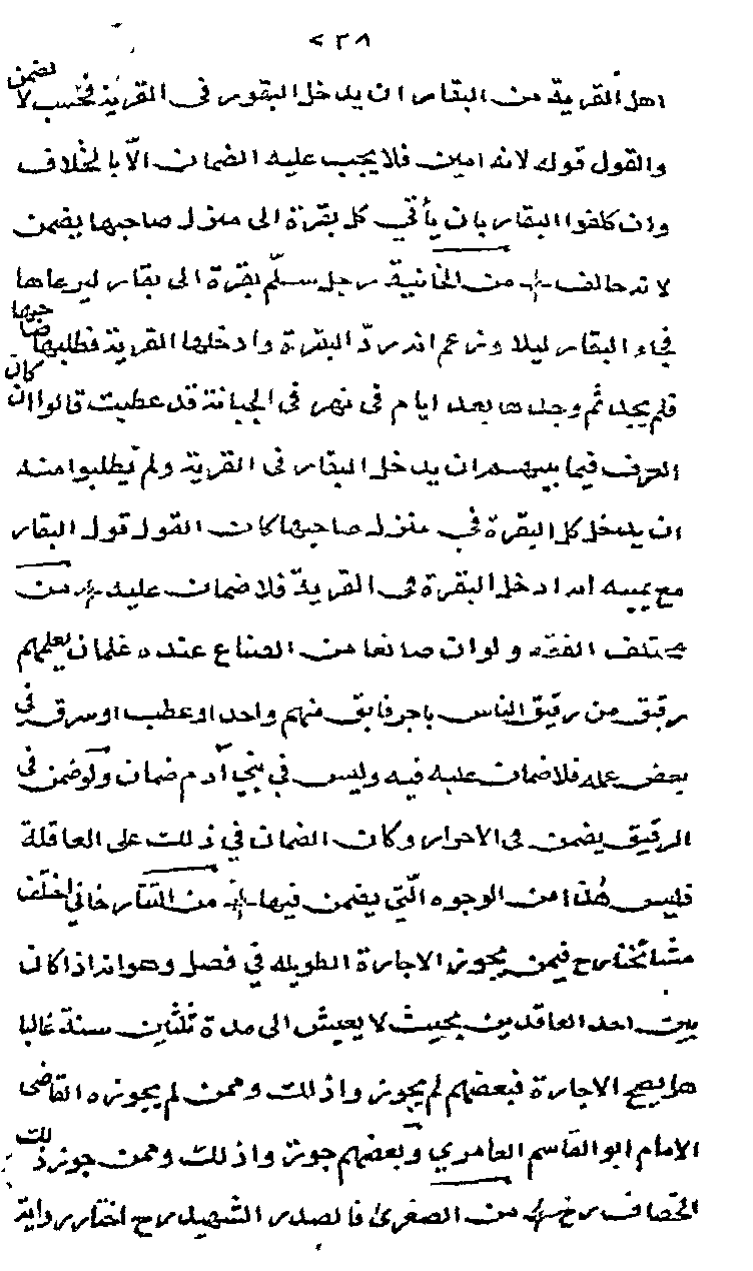 ٢٣٨
اهل القرية من البقار ان يدخل البقور فى القرية فحسب لا يضمن
والقول قوله لانه امين فلا يجب عليه الضمان الا بالخلاف
وان كلفوا البقار بان يأتي كل بقرة الى منزل صاحبها يضمن
لانه خالف من الخانية رجل سلّم بقرة الى بقار ليرعاها
فجاء البقار ليلا وزعم انه ردّ البقرة وادخلها القرية فطلبها صاحبها
فلم يجدها ثم وجدها بعد ايام فى نهر فى الجبانة قد عطبت قالوا ان كان
العرف فيما بينهم ان يدخل البقار فى القرية ولم يطلبوا منه
ان يدخل كل البقرة في منزل صاحبها كان القول قول البقار
مع يمينه انه ادخل البقرة فى القرية فلا ضمان عليه من
مختلف الفقه ولو ان صانعا من الصناع عنده غلمان يعلمهم
رقيق من رقيق الناس باجر فابق منهم واحد او عطب او سرق في
بعض عمله فلا ضمان عليه فيه وليس في بني آدم ضمان ولو ضمن في
الرقيق يضمن فى الاحرار وكان الضمان في ذلك على العاقلة
فليس هذا من الوجوه الّتي يضمن فيها من التتارخاني اختلف
مشائخنا رح فيمن يجوز الاجارة الطويله في فصل وهو انه اذا كان
بين احد العاقدين بحيث لا يعيش الى مدة ثلثين سنة غالبا
هل يصح الاجارة فبعضهم لم يجوزوا ذلك وممن لم يجوزه القاضى
الامام ابو القاسم العامري وبعضهم جوزوا ذلك وممن جوز ذلك
الخصاف رخ من الصغرى فالصدر الشهيد رح اختار رواية